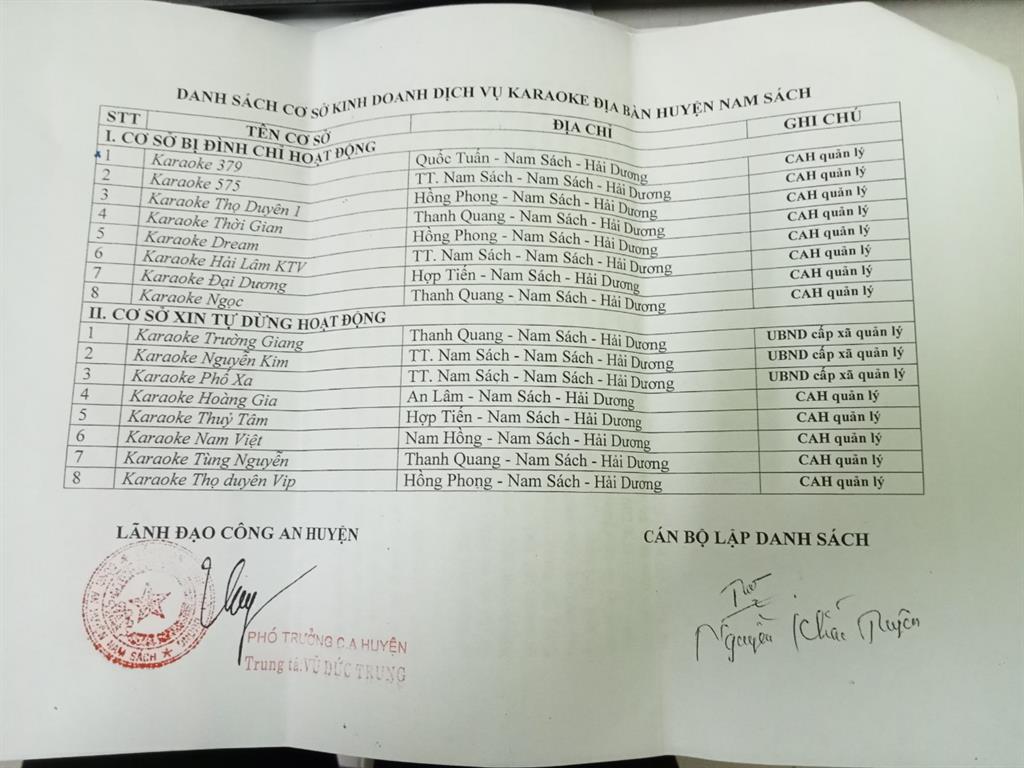 DANH SÁCH CƠ SỞ KINH DOANH DỊCH VỤ KARAOKE ĐỊA BÀN HUYỆN NAM SÁCH
STT TÊN CƠ SỞ ĐỊA CHỈ GHI CHÚ
I. CƠ SỞ BỊ ĐÌNH CHỈ HOẠT ĐỘNG
1 Karaoke 379 Quốc Tuấn - Nam Sách - Hải Dương CAH quản lý
2 Karaoke 575 TT. Nam Sách - Nam Sách - Hải Dương CAH quản lý
3 Karaoke Thọ Duyên 1 Hồng Phong - Nam Sách - Hải Dương CAH quản lý
4 Karaoke Thời Gian Thanh Quang - Nam Sách - Hải Dương CAH quản lý
5 Karaoke Dream Hồng Phong - Nam Sách - Hải Dương CAH quản lý
6 Karaoke Hải Lâm KTV TT. Nam Sách - Nam Sách - Hải Dương CAH quản lý
7 Karaoke Đại Dương Hợp Tiến - Nam Sách - Hải Dương CAH quản lý
8 Karaoke Ngọc Thanh Quang - Nam Sách - Hải Dương CAH quản lý
II. CƠ SỞ XIN TỰ DỪNG HOẠT ĐỘNG
1 Karaoke Trường Giang Thanh Quang - Nam Sách - Hải Dương UBND cấp xã quản lý
2 Karaoke Nguyễn Kim TT. Nam Sách - Nam Sách - Hải Dương UBND cấp xã quản lý
3 Karaoke Phố Xa TT. Nam Sách - Nam Sách - Hải Dương UBND cấp xã quản lý
4 Karaoke Hoàng Gia An Lâm - Nam Sách - Hải Dương CAH quản lý
5 Karaoke Thuỷ Tâm Hợp Tiến - Nam Sách - Hải Dương CAH quản lý
6 Karaoke Nam Việt Nam Hồng - Nam Sách - Hải Dương CAH quản lý
7 Karaoke Tùng Nguyễn Thanh Quang - Nam Sách - Hải Dương CAH quản lý
8 Karaoke Thọ duyên Vip Hồng Phong - Nam Sách - Hải Dương CAH quản lý
LÃNH ĐẠO CÔNG AN HUYỆN CÁN BỘ LẬP DANH SÁCH
NAM SÁCH
PHÓ TRƯỞNG C.A HUYỆN
Trung tá: VŨ ĐỨC TRUNG
Nguyễn